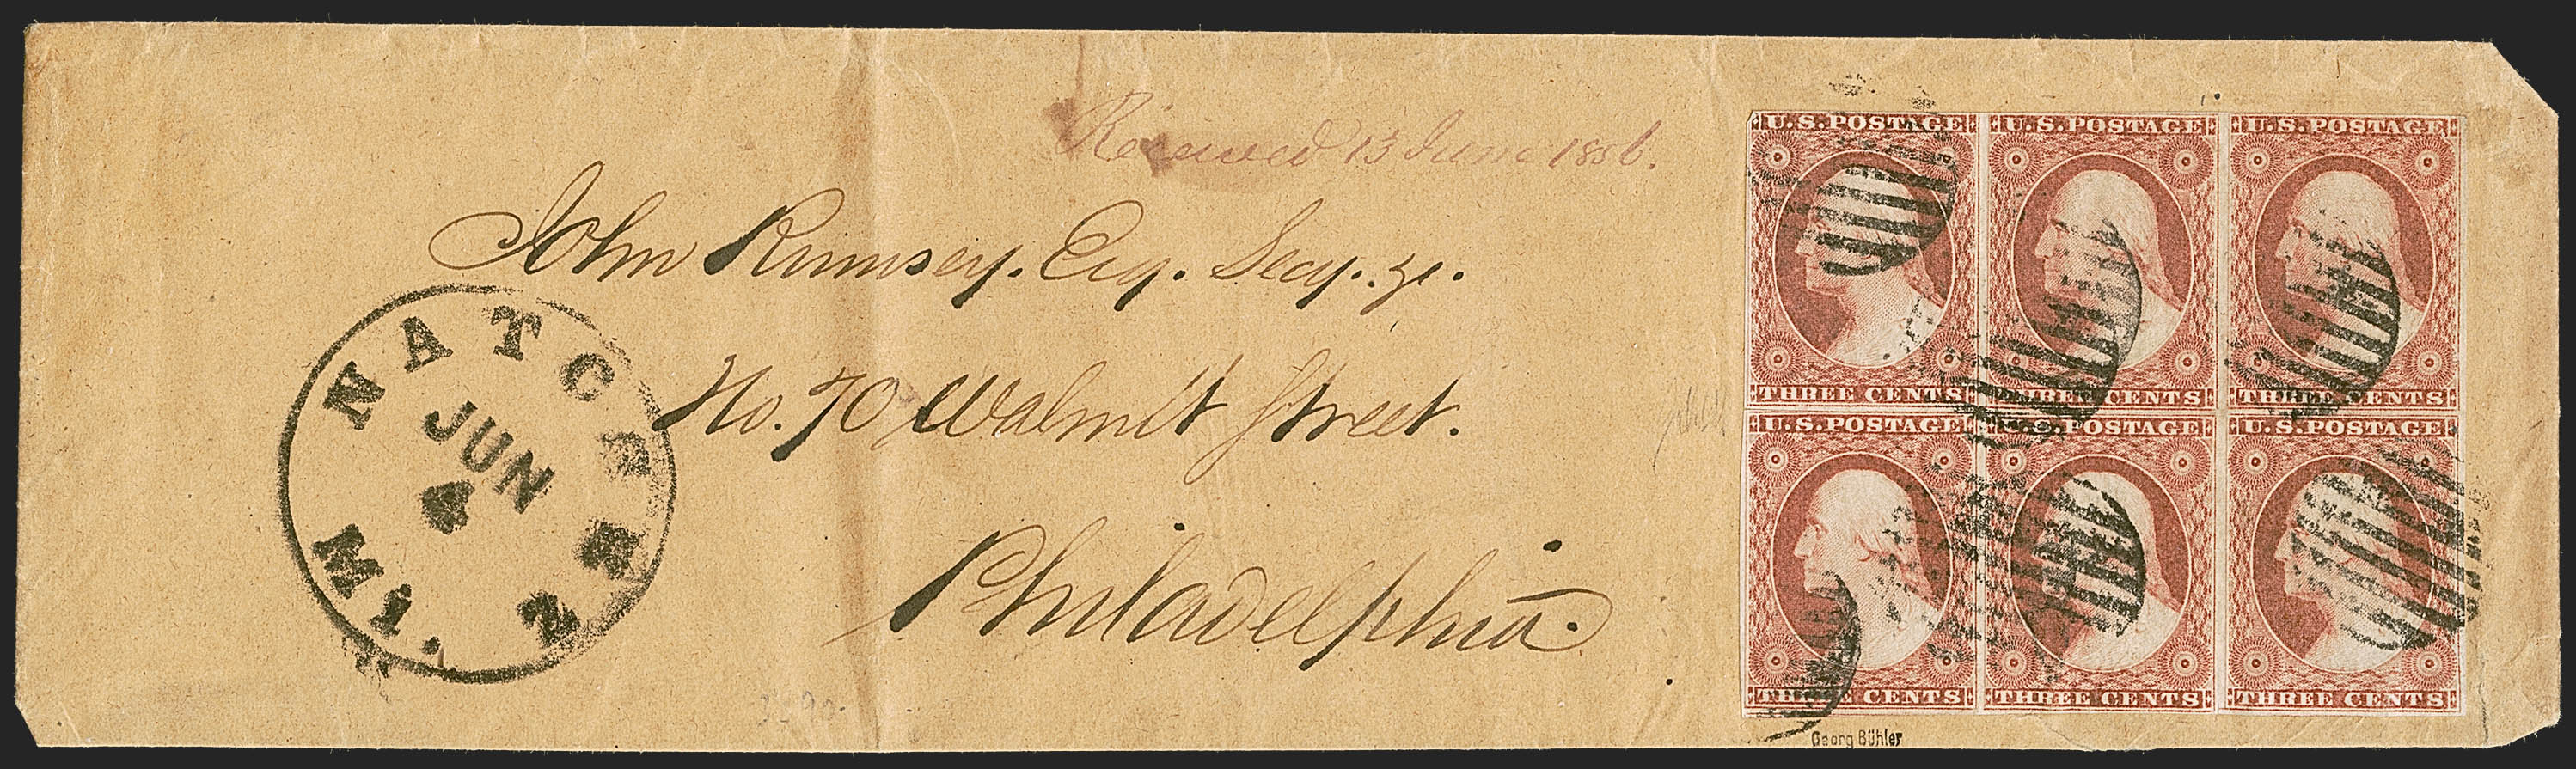 Received 13 June 1856.
John Rumsey. Esq. Secy. &c.
No. 70 Walnut Street.
Philadelphia.
NATCHEZ
JUN
4
Mi.
U.S. POSTAGE U.S. POSTAGE U.S. POSTAGE
THREE CENTS THREE CENTS THREE CENTS
U.S. POSTAGE U.S. POSTAGE U.S. POSTAGE
THREE CENTS THREE CENTS THREE CENTS
Georg Bühler